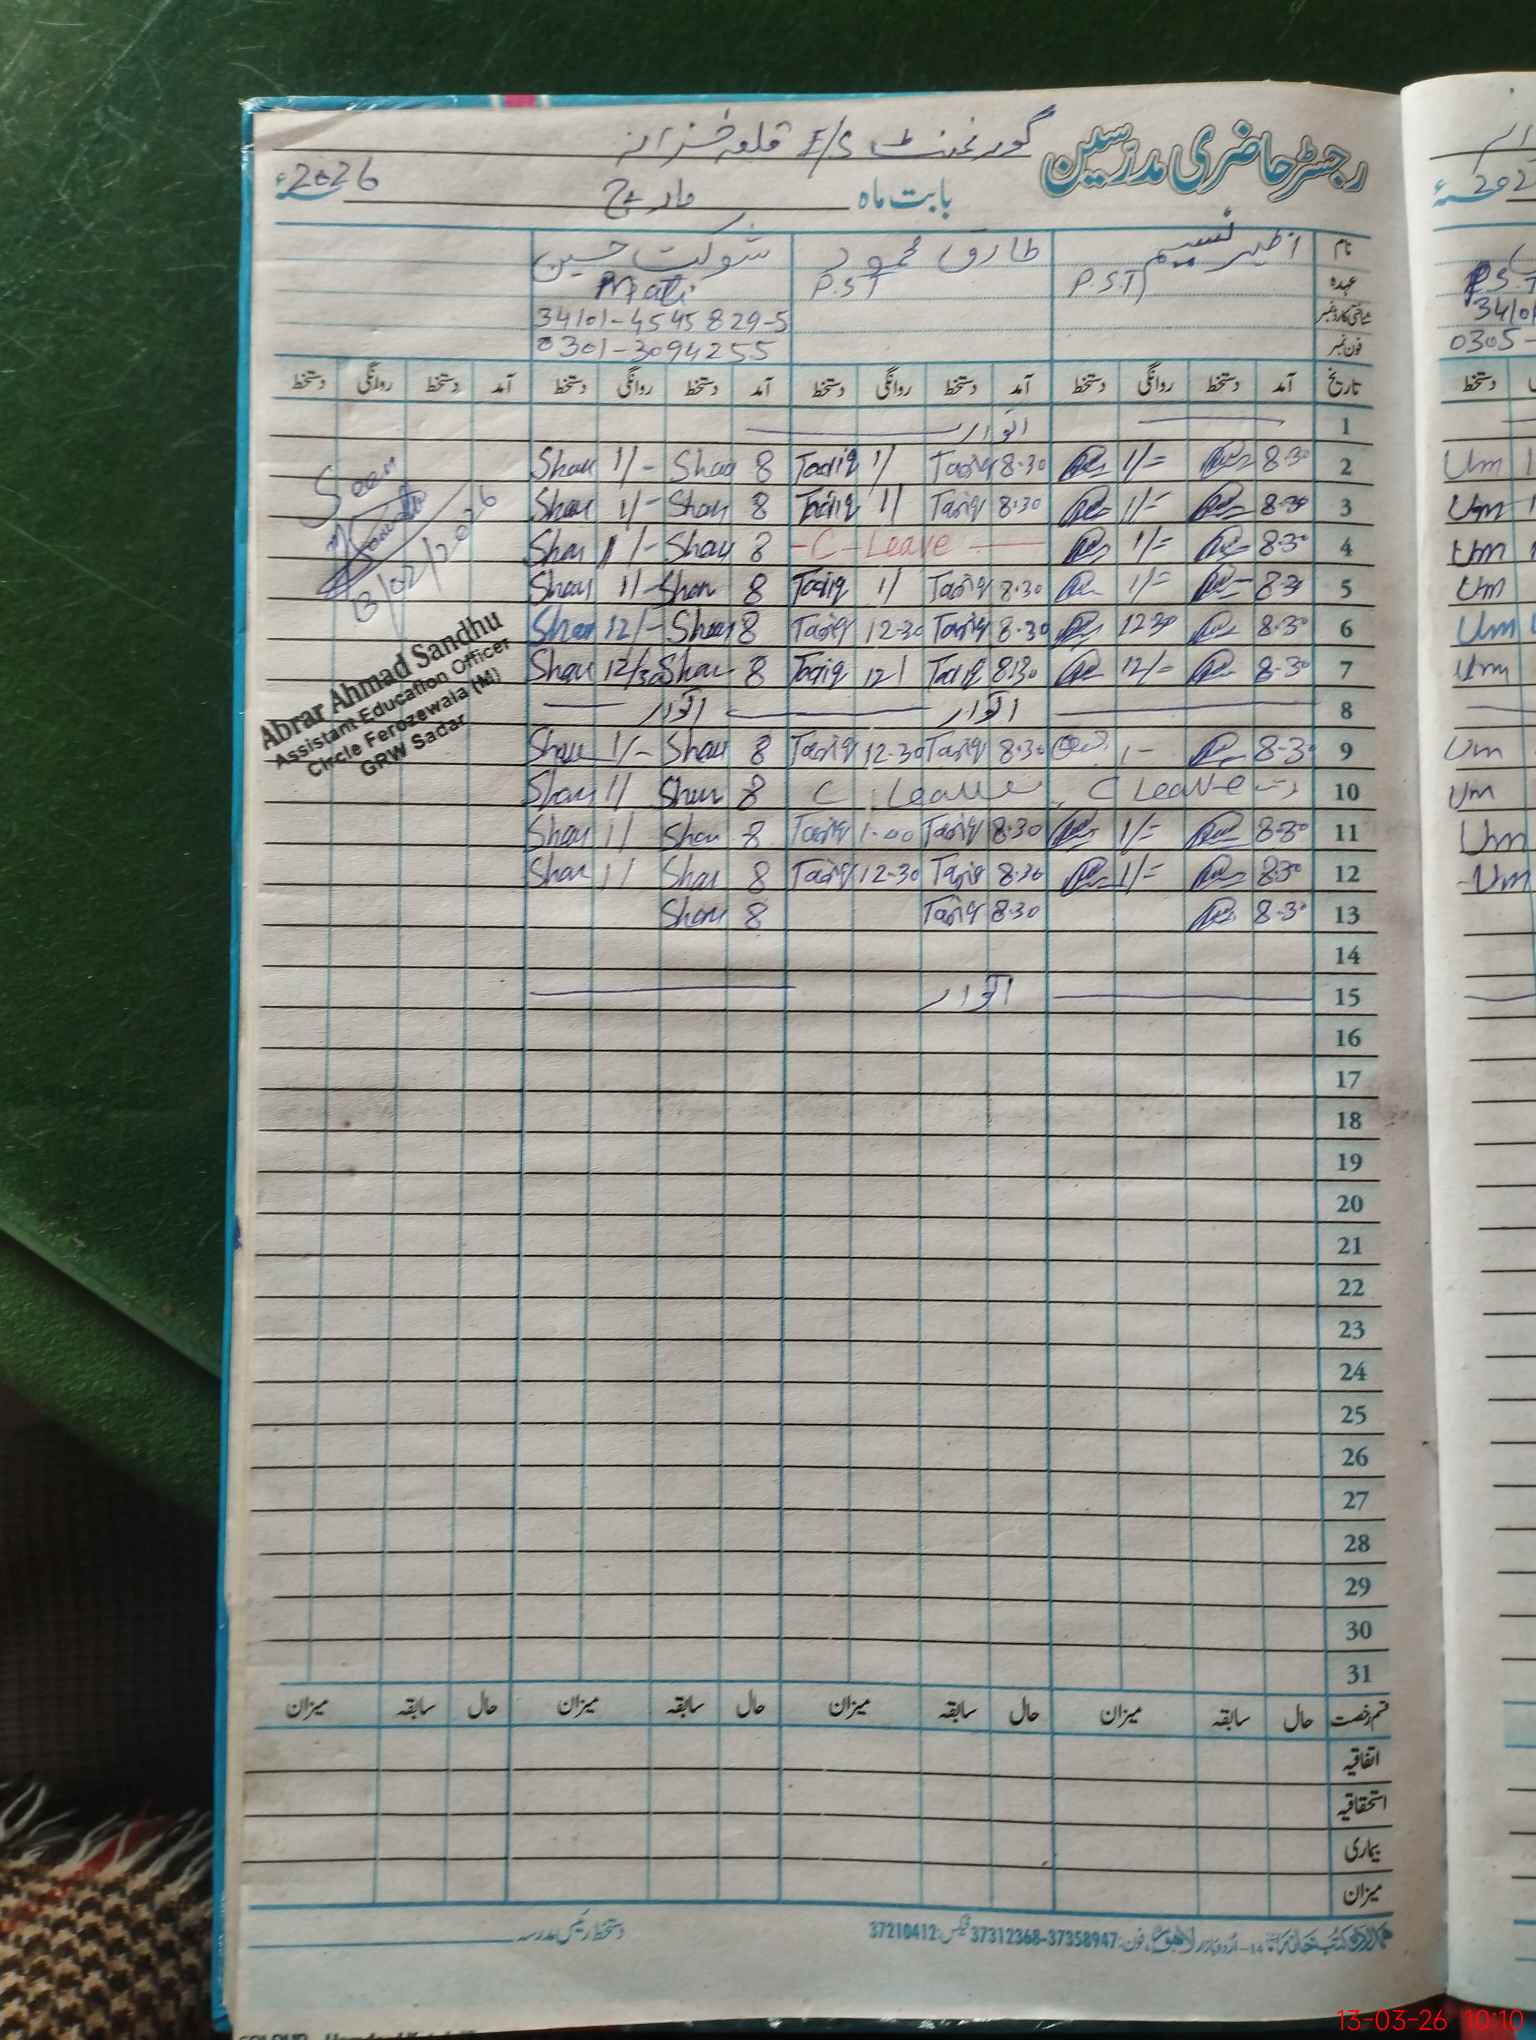 رجسٹر حاضری مدرسین گورنمنٹ E/S قلعہ خزانہ
بابت ماہ مارچ 2026ء
نام اظہر نسیم طارق محمود شوکت حسین
عہدہ P.S.T P.S.T Mali
شناختی کارڈ نمبر 34101-4545829-5
فون نمبر 0301-3094255
تاریخ آمد دستخط روانگی دستخط آمد دستخط روانگی دستخط آمد دستخط روانگی دستخط آمد دستخط روانگی دستخط
1 اتوار
2 8.30 1/= 8.30 Tariq 1/ Tariq 8 Shau 1/- Shau
3 8.30 1/= 8.30 Tariq 1/ Tariq 8 Shau 1/- Shau
4 8.30 1/= C-Leave 8 Shau 1/- Shau
5 8.30 1/= 8.30 Tariq 1/ Tariq 8 Shau 1/- Shau
6 8.30 12.30 8.30 Tariq 12-30 Tariq 8 Shau 12/- Shau
7 8.30 12/= 8.30 Tariq 12/ Tariq 8 Shau 12/30 Shau
8 اتوار اتوار
9 8.30 1- 8.30 Tariq 12.30 Tariq 8 Shau 1/- Shau
10 C Leave C Leave 8 Shau 1/ Shau
11 8.30 1/= 8.30 Tariq 1.00 Tariq 8 Shau 1/ Shau
12 8.30 1/= 8.30 Tariq 12-30 Tariq 8 Shau 1/ Shau
13 8.30 8.30 Tariq 8 Shau
14
15 اتوار
16
17
18
19
20
21
22
23
24
25
26
27
28
29
30
31
Seen
13/02/2026
Abrar Ahmad Sandhu
Assistant Education Officer
Circle Ferozewala (M)
GRW Sadar
قسم رخصت حال سابقہ میزان حال سابقہ میزان حال سابقہ میزان حال سابقہ میزان
اتفاقیہ
استحقاقیہ
بیماری
میزان
لاہور فون: 37358947-37312368 فیکس: 37210412
دستخط رئیس مدرسہ
2026ء
P.S.T
34101
0305-
دستخط
Um
Um
Um
Um
Um
Um
Um
Um
Um
Um
13-03-26 10:10